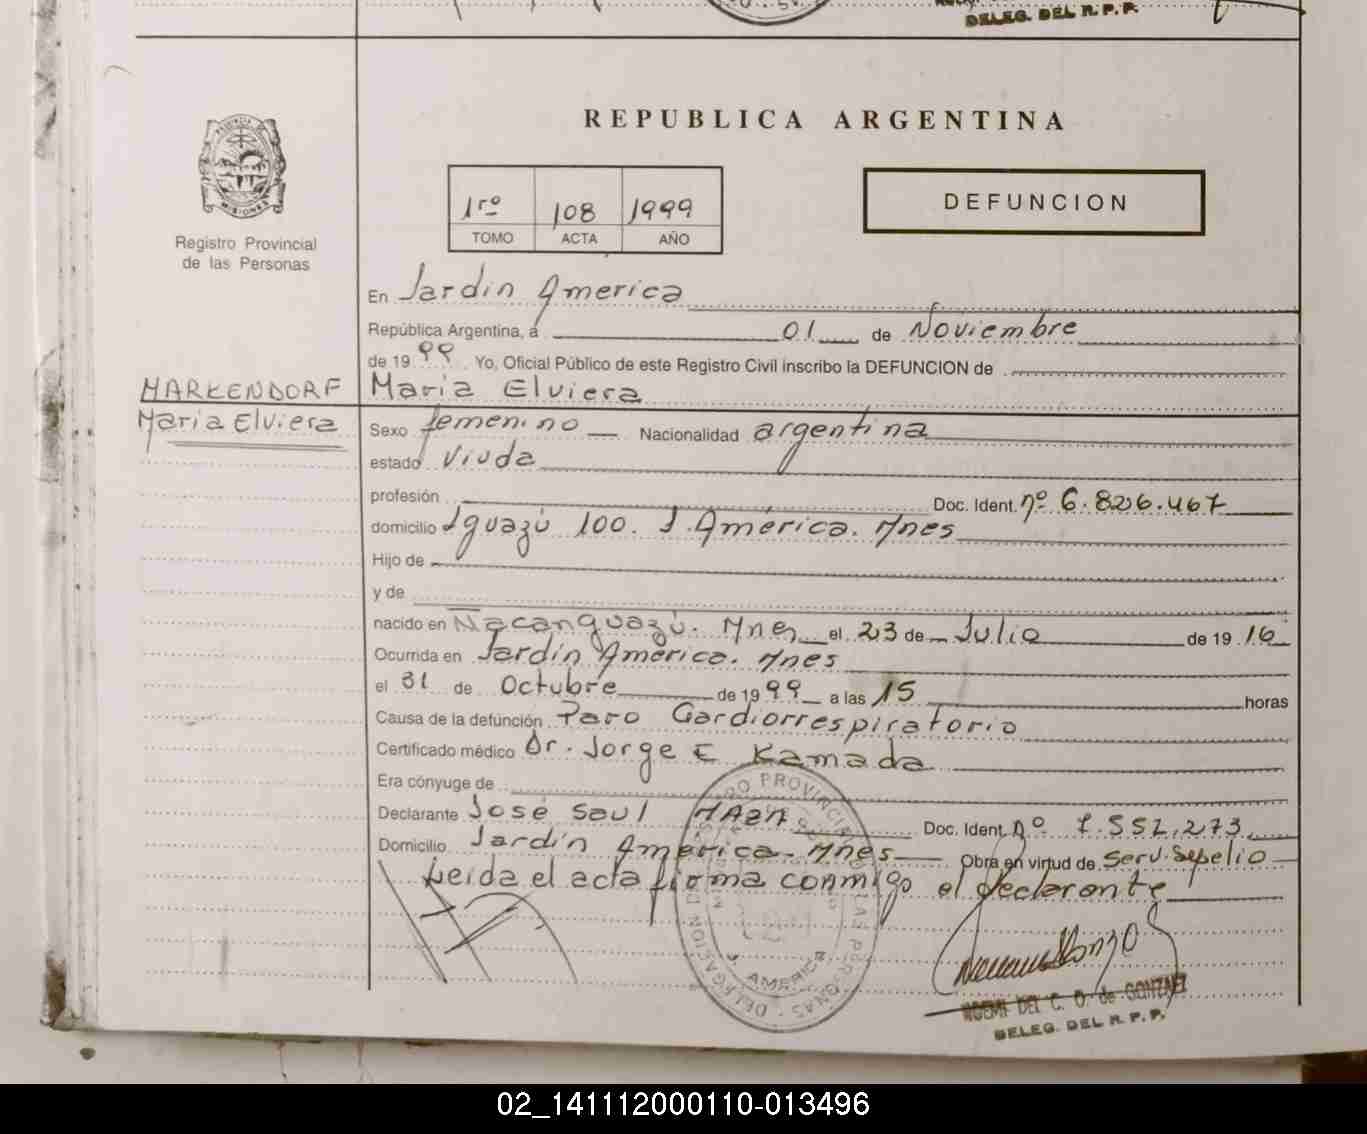 DELEG. DEL R.P.P.
REPUBLICA ARGENTINA
PROVINCIA DE
MISIONES
Registro Provincial
de las Personas
1ro 108 1999
TOMO ACTA AÑO
DEFUNCION
En Jardin America
República Argentina, á 01 de Noviembre
de 1999 Yo, Oficial Público de este Registro Civil inscribo la DEFUNCION de
MARKENDORF
Maria Elviera
Maria Elviera
Sexo femenino Nacionalidad argentina
estado Viuda
profesión Doc. Ident. nº 6.826.467
domicilio Iguazú 100. J. América. Mnes
Hijo de
y de
nacido en Ñacanguazú. Mnes el 23 de Julio de 1916
Ocurrida en Jardín América. Mnes
el 31 de Octubre de 1999 a las 15 horas
Causa de la defunción Paro Cardiorrespiratorio
Certificado médico Dr. Jorge E Kamada
Era cónyuge de
Declarante José Saul Doc. Ident. nº 7.552.273
Domicilio Jardín América. Mnes Obra en virtud de Serv. Sepelio
Leida el acta firma conmigo el declarante
AMERICA
NOEMI DEL C. O. de GONZALEZ
DELEG. DEL R.P.P.
02_141112000110-013496